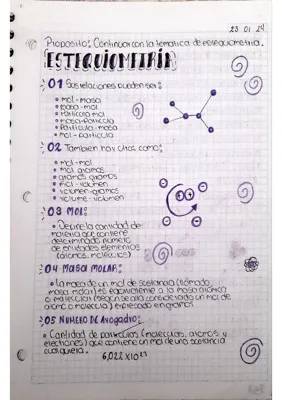 23 01 24
Proposito: Continuar con la tematica de estequiometria.
ESTEQUIOMETRÍA
01 Sus relaciones pueden ser:
• mol - masa
• masa - mol
• Particula mol
• masa - Particula
• Particula - masa
• mol - particula
02 Tambien hay otras como:
• mol - mol
• mol gramos
• gramos gramos
• mol - volumen
• volumen - gramos
• volumen - volumen
03 MOL:
• Define la cantidad de
materia que contiene
determinado numero
de entidades elementales
(átomos, moleculas)
04 MASA MOLAR:
• La masa de un mol de sustancia (llamado
masa molar) es equivalente a la masa atómica
o molecular (según se haya considerado un mol de
átomo o molecula) expresado en gramos.
05 NUMERO DE Avogadro:
• Cantidad de particulas (moleculas, atomos y
electrones) que contiene un mol de una sustancia
cualquiera.
6,022 x 10²³